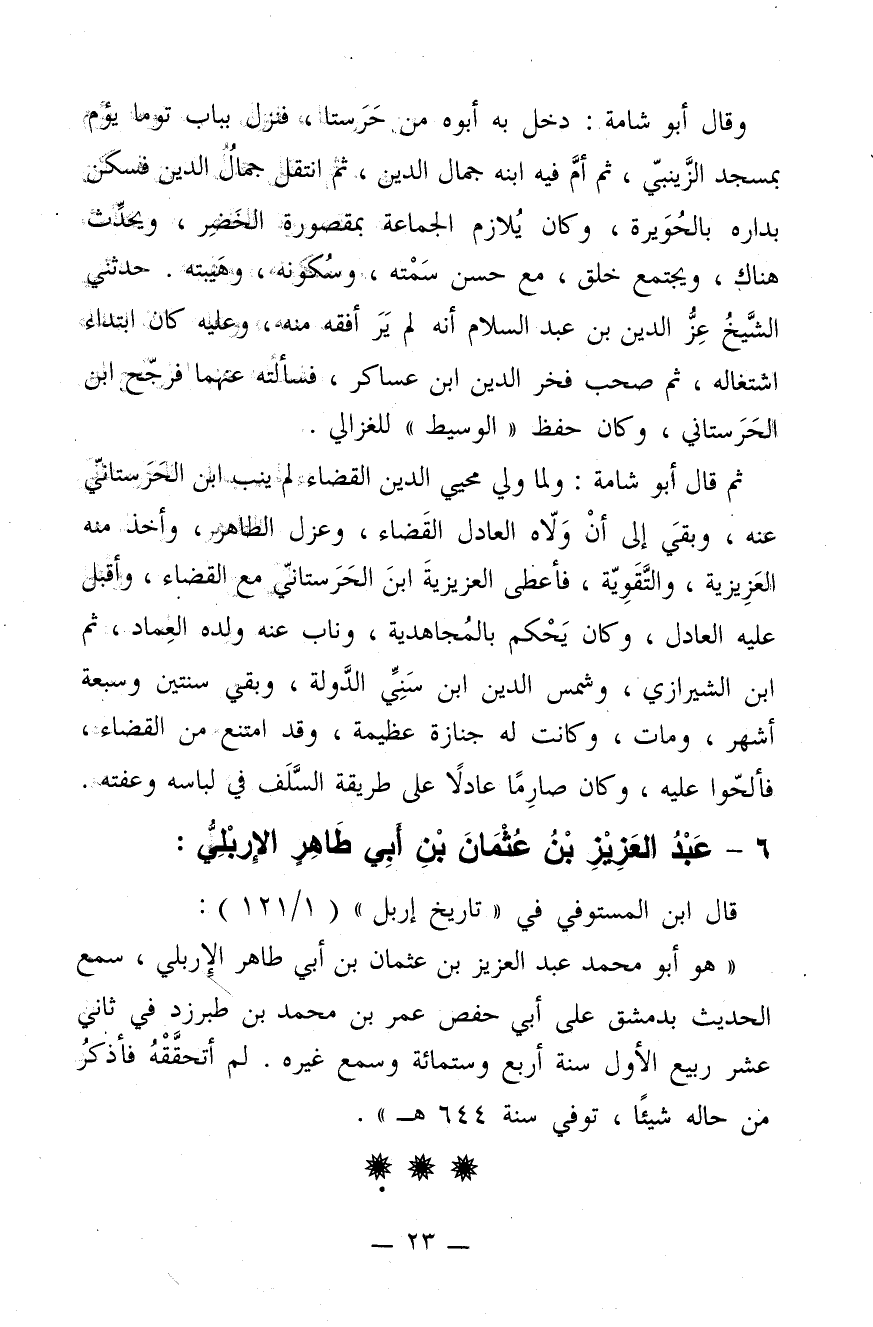 وقال أبو شامة : دخل به أبوه من حَرَستا ، فنزل بباب توما يؤم
بمسجد الزَّينبيّ ، ثم أمَّ فيه ابنه جمال الدين ، ثم انتقل جمالُ الدين فسكن
بداره بالحُوَيرة ، وكان يُلازم الجماعة بمقصورة الخَضِر ، ويحدِّث
هناك ، ويجتمع خلق ، مع حسن سَمْته ، وسُكونه ، وهَيْبته . حدثني
الشَّيخُ عِزُّ الدين بن عبد السلام أنه لم يَرَ أفقه منه ، وعليه كان ابتداء
اشتغاله ، ثم صحب فخر الدين ابن عساكر ، فسألته عنهما فرجّح ابن
الحَرَستاني ، وكان حفظ « الوسيط » للغزالي .
ثم قال أبو شامة : ولما ولي محيي الدين القضاء لم ينب ابن الحَرَستانيّ
عنه ، وبقيَ إلى أنْ وَلّاه العادل القَضاء ، وعزل الطاهر ، وأخذ منه
العَزِيزية ، والتَّقَوِيّة ، فأعطى العزيزيةَ ابنَ الحَرَستانيّ مع القضاء ، وأقبل
عليه العادل ، وكان يَحْكم بالمُجاهدية ، وناب عنه ولده العِماد ، ثم
ابن الشيرازي ، وشمس الدين ابن سَنِيِّ الدَّولة ، وبقي سنتين وسبعة
أشهر ، ومات ، وكانت له جنازة عظيمة ، وقد امتنع من القضاء ،
فألحّوا عليه ، وكان صارِمًا عادلًا على طريقة السَّلَف في لباسه وعفته .
٦ - عَبْدُ العَزِيْزِ بْنُ عُثْمَانَ بْنِ أَبِي طَاهِرٍ الإرْبْلِيُّ :
قال ابن المستوفي في « تاريخ إربل » ( ١٢١/١ ) :
« هو أبو محمد عبد العزيز بن عثمان بن أبي طاهر الإربلي ، سمع
الحديث بدمشق على أبي حفص عمر بن محمد بن طبرزد في ثاني
عشر ربيع الأول سنة أربع وستمائة وسمع غيره . لم أتحقَّقْهُ فأذكرُ
من حاله شيئًا ، توفي سنة ٦٤٤ هـ » .
— ٢٣ —